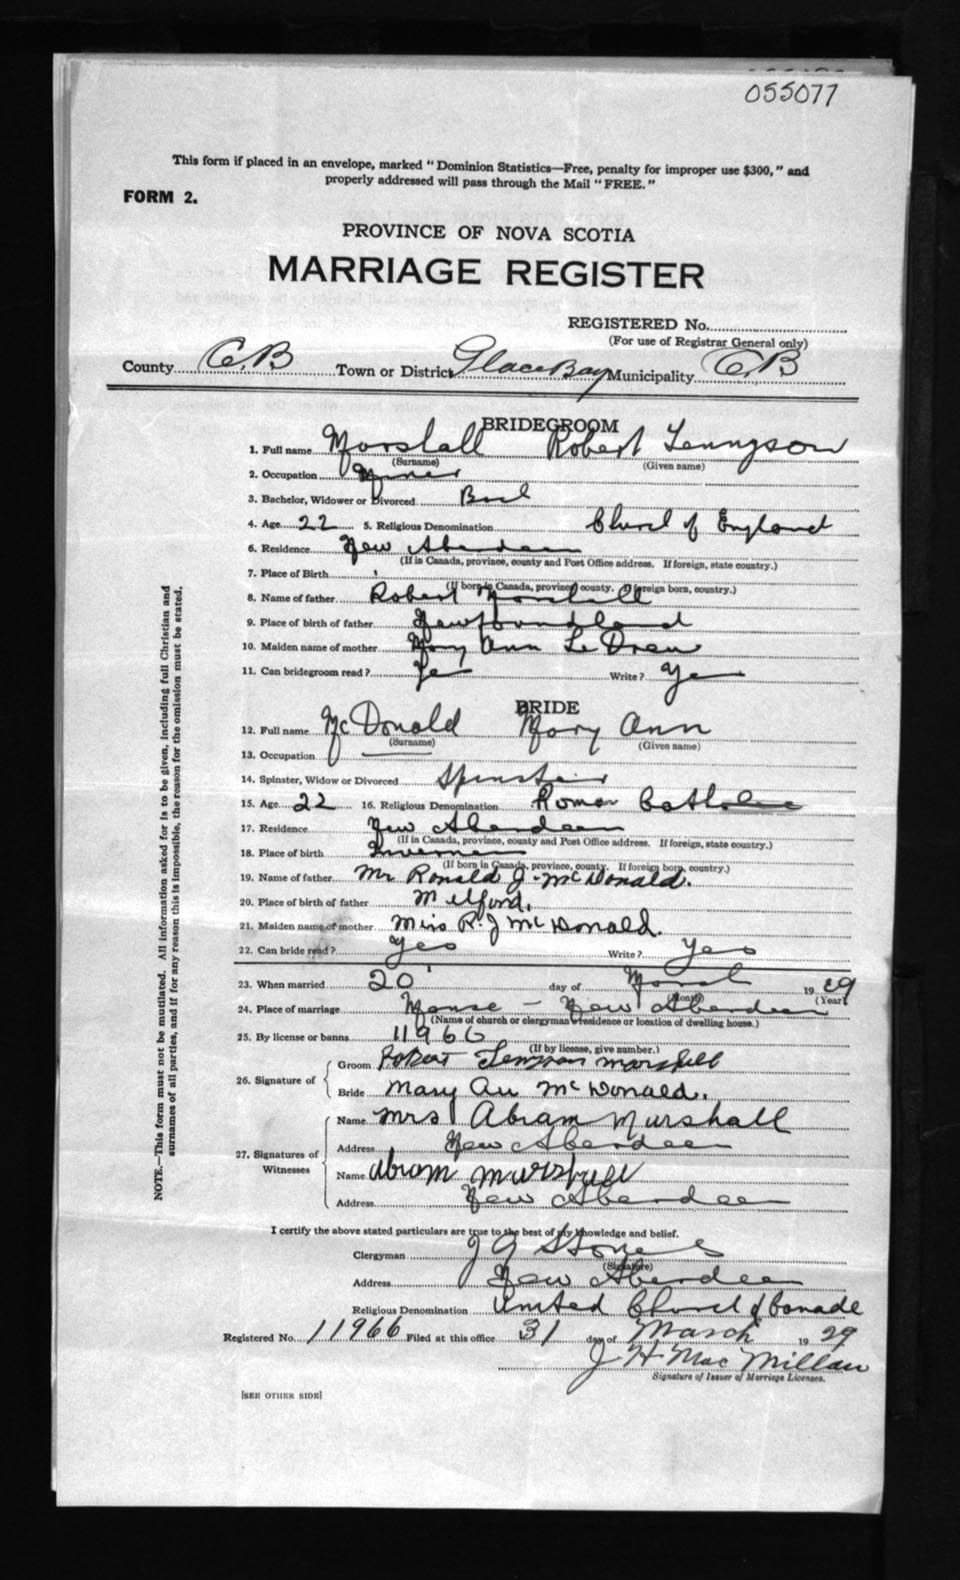 055077
This form if placed in an envelope, marked "Dominion Statistics—Free, penalty for improper use $300," and
properly addressed will pass through the Mail "FREE."
FORM 2.
PROVINCE OF NOVA SCOTIA
MARRIAGE REGISTER
REGISTERED No.
(For use of Registrar General only)
County C.B Town or District Glace Bay Municipality C.B
BRIDEGROOM
1. Full name Marshall Robert Tennyson
(Surname) (Given name)
2. Occupation Miner
3. Bachelor, Widower or Divorced Bach
4. Age 22 5. Religious Denomination Church of England
6. Residence New Aberdeen
(If in Canada, province, county and Post Office address. If foreign, state country.)
7. Place of Birth "
(If born in Canada, province, county. If foreign born, country.)
8. Name of father Robert Marshall
9. Place of birth of father Newfoundland
10. Maiden name of mother Mary Ann Le Drew
11. Can bridegroom read? Yes Write? Yes
BRIDE
12. Full name McDonald Mary Ann
(Surname) (Given name)
13. Occupation
14. Spinster, Widow or Divorced Spinster
15. Age 22 16. Religious Denomination Roman Catholic
17. Residence New Aberdeen
(If in Canada, province, county and Post Office address. If foreign, state country.)
18. Place of birth Inverness
(If born in Canada, province, county. If foreign born, country.)
19. Name of father Mr Ronald J. McDonald.
20. Place of birth of father Milford.
21. Maiden name of mother Miss R. J McDonald.
22. Can bride read? Yes Write? Yes
23. When married 20 day of March 1929
(Month) (Year)
24. Place of marriage Manse - New Aberdeen
(Name of church or clergyman's residence or location of dwelling house.)
25. By license or banns 11966
(If by license, give number.)
26. Signature of
Groom Robert Marshall
Bride Mary An McDonald.
27. Signatures of Witnesses
Name Mrs Abram Marshall
Address New Aberdeen
Name Abram Marshall
Address New Aberdeen
I certify the above stated particulars are true to the best of my knowledge and belief.
Clergyman J G
(Signature)
Address New Aberdeen
Religious Denomination United Church of Canada
Registered No. 11966 Filed at this office 31 day of March 1929
J H MacMillan
Signature of Issuer of Marriage Licenses.
[SEE OTHER SIDE]
NOTE.—This form must not be mutilated. All information asked for is to be given, including full Christian and
surnames of all parties, and if for any reason this is impossible, the reason for the omission must be stated.